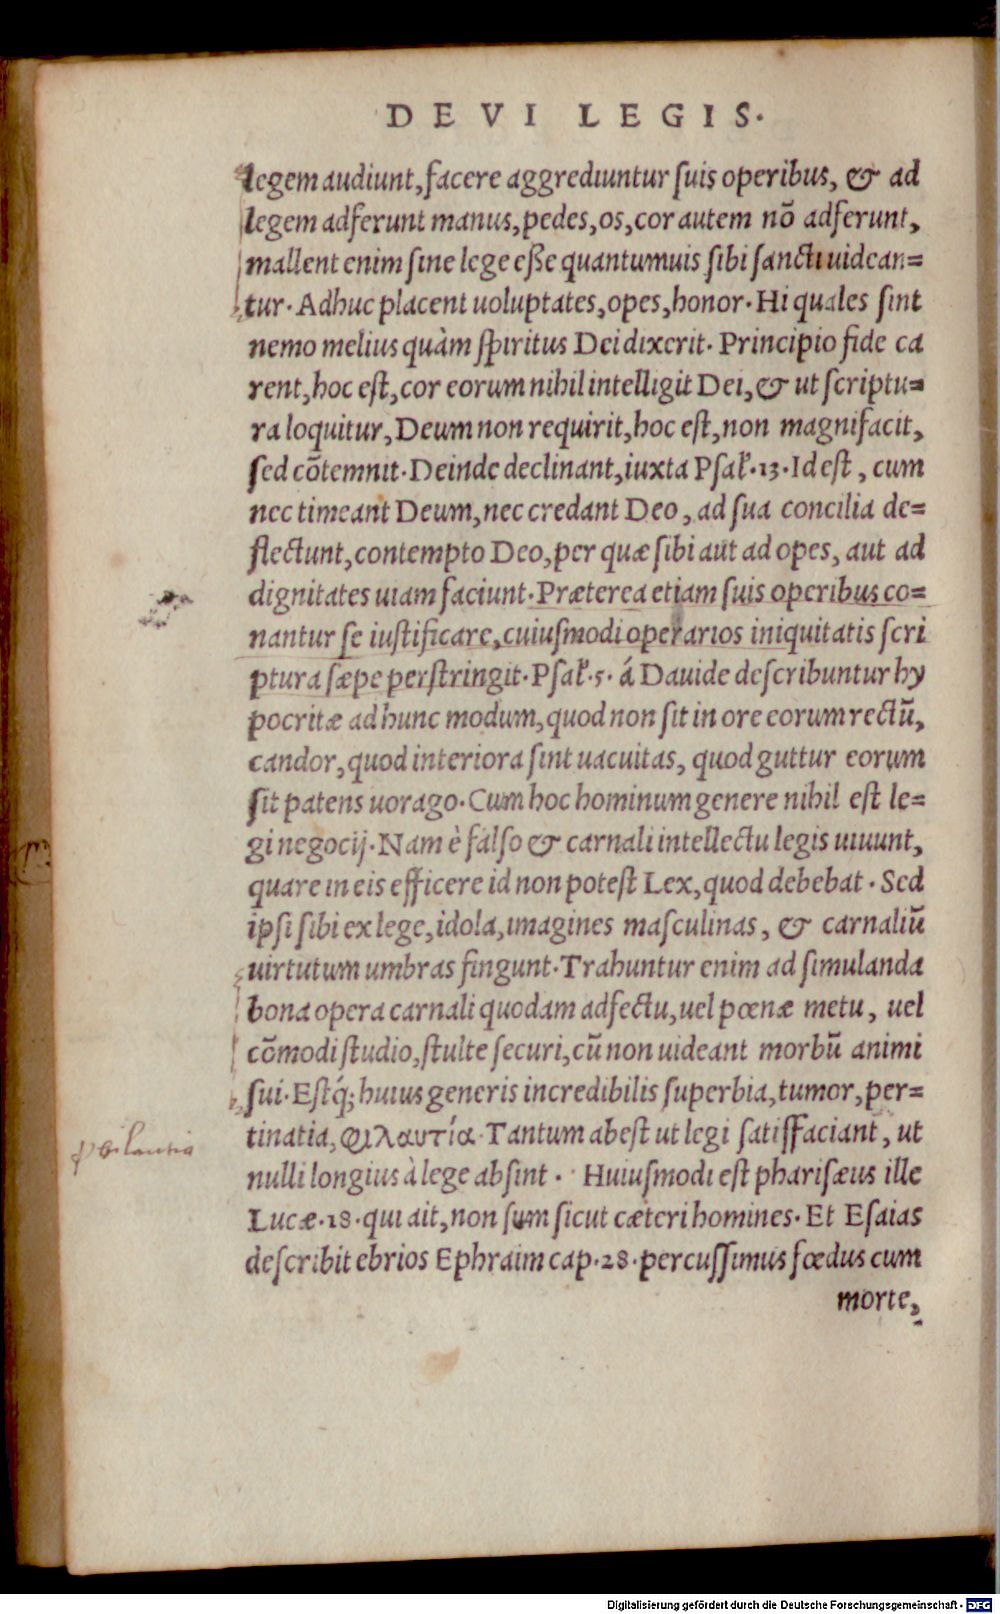 DE VI LEGIS.
legem audiunt, facere aggrediuntur ſuis operibus, & ad
legem adferunt manus, pedes, os, cor autem nō adferunt,
mallent enim ſine lege eſſe quantumuis ſibi ſancti uidean=
tur. Adhuc placent uoluptates, opes, honor. Hi quales ſint
nemo melius quàm ſpiritus Dei dixerit. Principio fide ca
rent, hoc eſt, cor eorum nihil intelligit Dei, & ut ſcriptu=
ra loquitur, Deum non requirit, hoc eſt, non magnifacit,
ſed cōtemnit. Deinde declinant, iuxta Pſal. 13. Id eſt, cum
nec timeant Deum, nec credant Deo, ad ſua concilia de=
flectunt, contempto Deo, per quæ ſibi aut ad opes, aut ad
dignitates uiam faciunt. Præterea etiam ſuis operibus co=
nantur ſe iuſtificare, cuiuſmodi operarios iniquitatis ſcri
ptura ſæpe perſtringit. Pſal. 5. á Dauide deſcribuntur hy
pocritæ ad hunc modum, quod non ſit in ore eorum rectū,
candor, quod interiora ſint uacuitas, quod guttur eorum
ſit patens uorago. Cum hoc hominum genere nihil eſt le=
gi negocij. Nam è falſo & carnali intellectu legis uiuunt,
quare in eis efficere id non poteſt Lex, quod debebat. Sed
ipſi ſibi ex lege, idola, imagines maſculinas, & carnaliū
uirtutum umbras fingunt. Trahuntur enim ad ſimulanda
bona opera carnali quodam adfectu, uel pœnæ metu, uel
cōmodi ſtudio, ſtulte ſecuri, cū non uideant morbū animi
ſui. Eſtq́; huius generis incredibilis ſuperbia, tumor, per=
tinatia, φιλαυτία. Tantum abeſt ut legi ſatiſfaciant, ut
philautia
nulli longius à lege abſint. Huiuſmodi eſt phariſæus ille
Lucæ. 18. qui ait, non ſum ſicut cæteri homines. Et Eſaias
deſcribit ebrios Ephraim cap. 28. percuſſimus fœdus cum
morte,
Digitalisierung gefördert durch die Deutsche Forschungsgemeinschaft - DFG